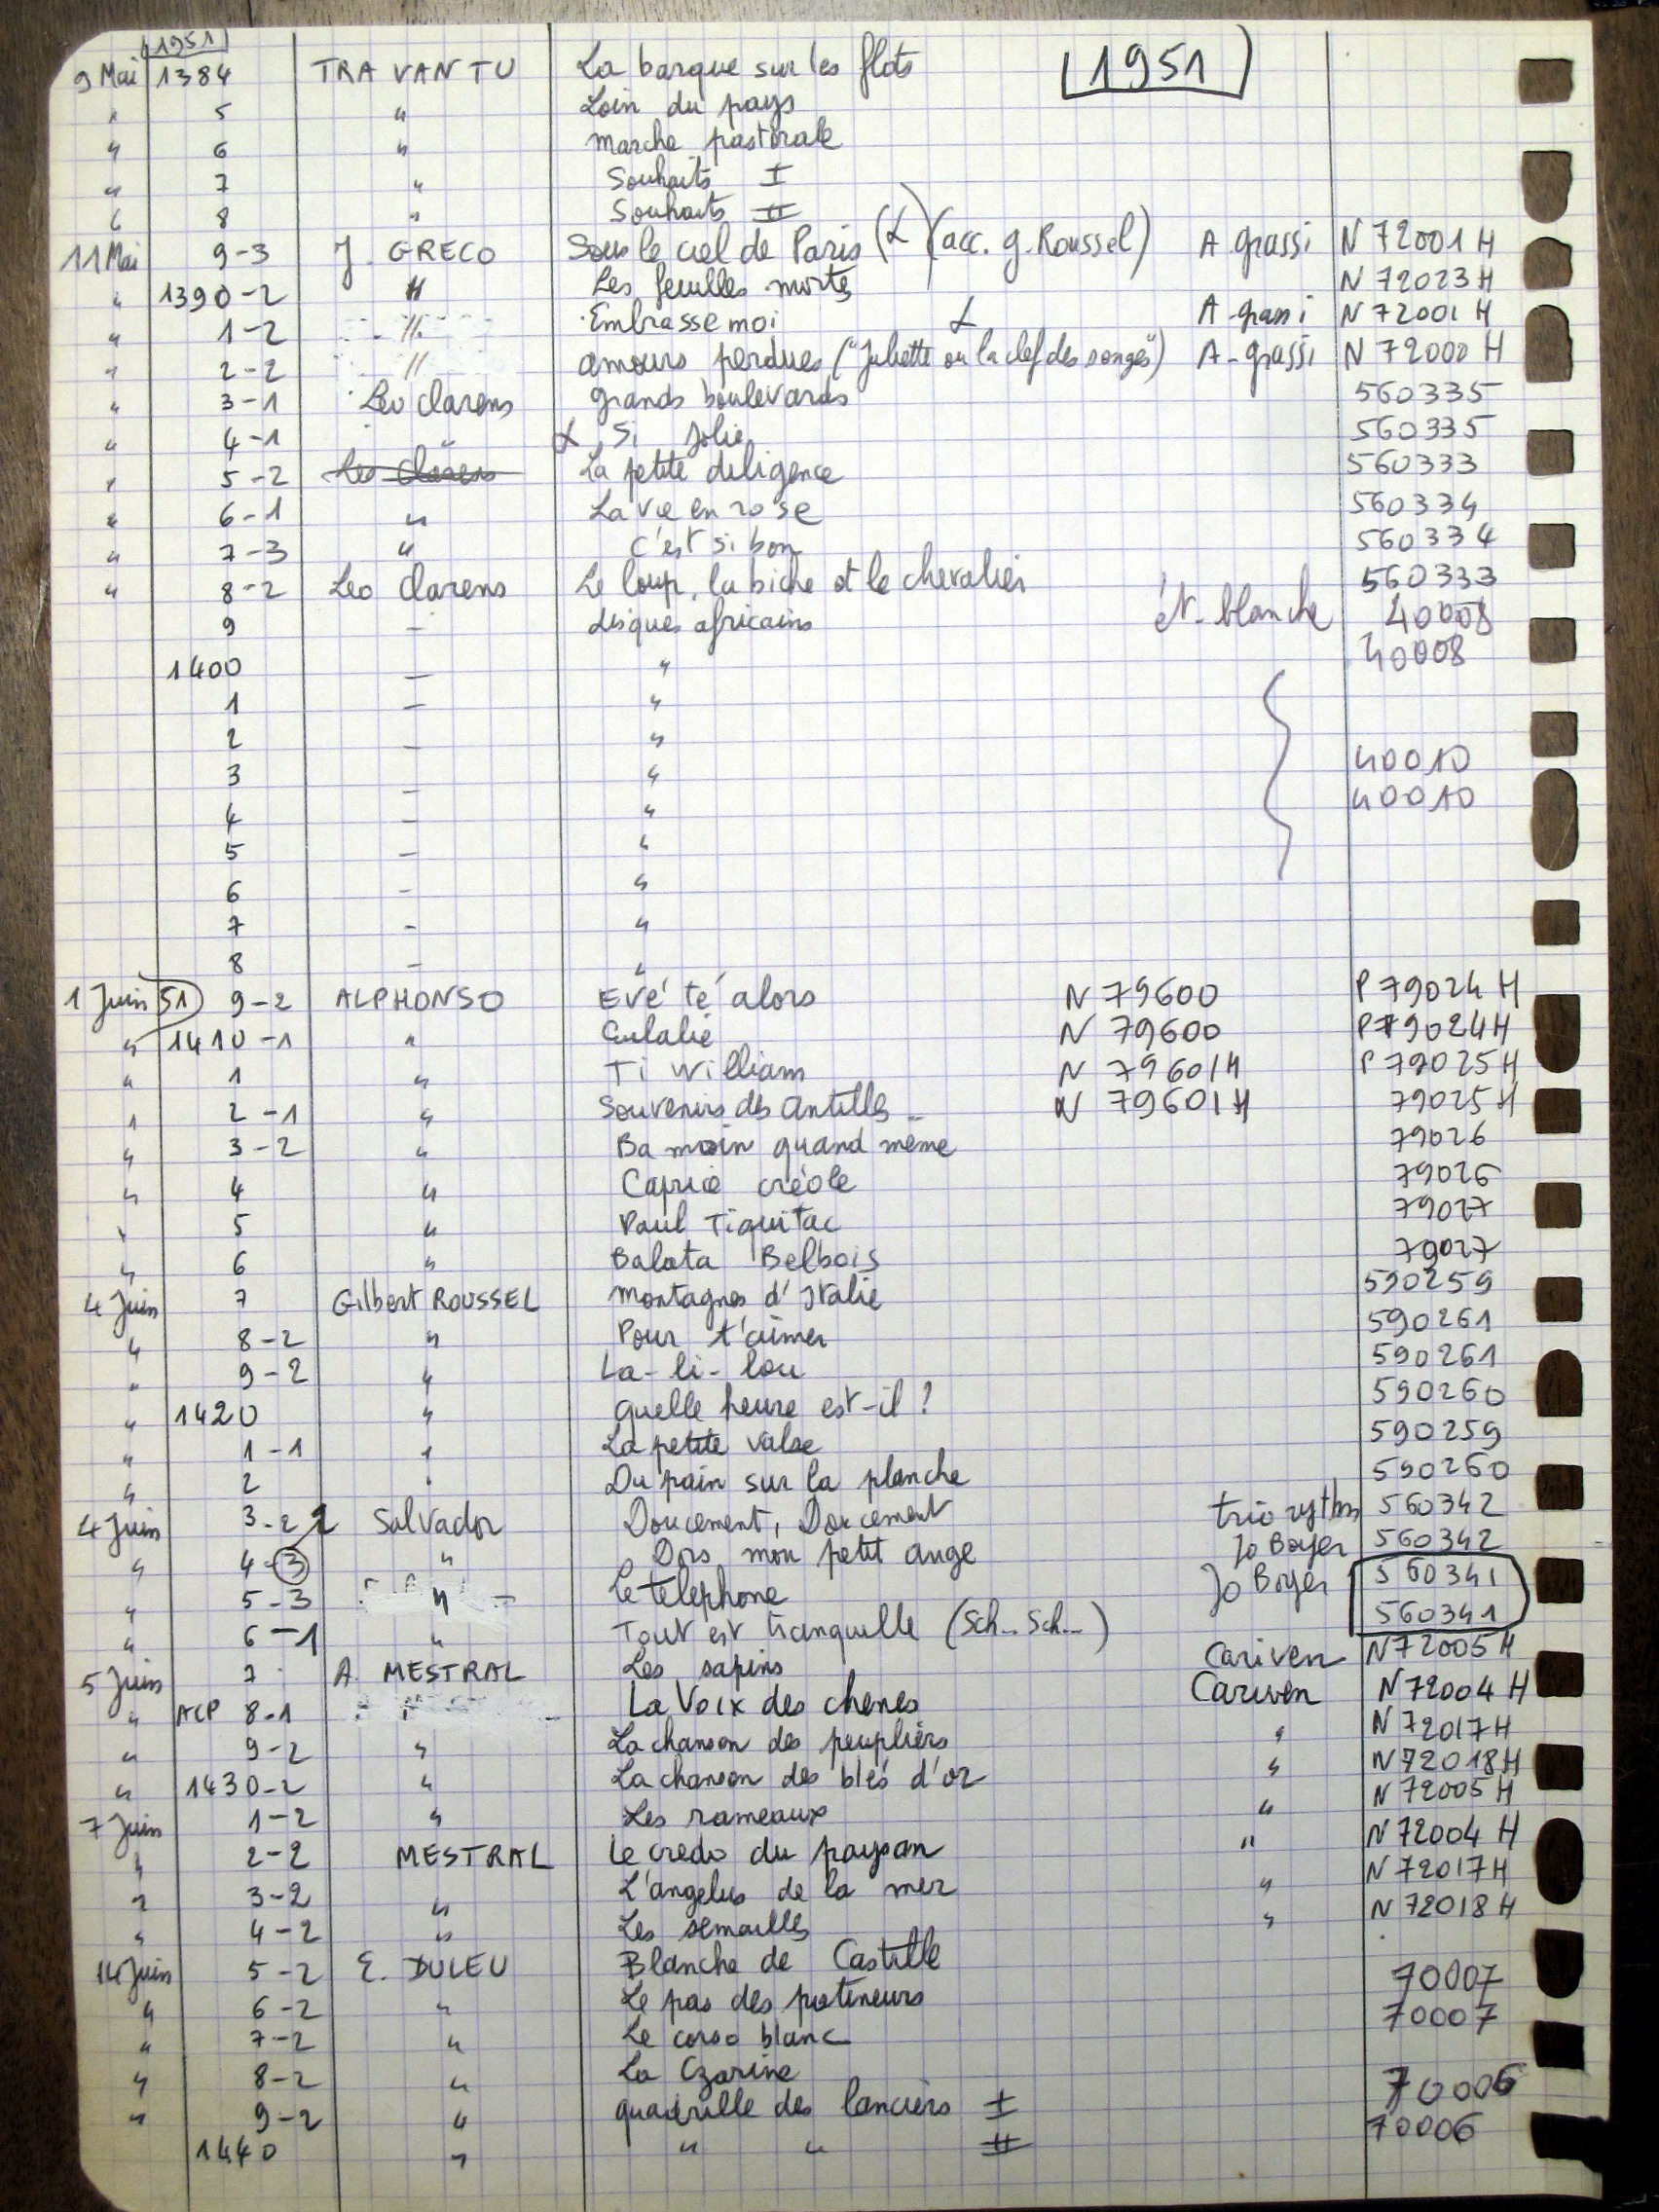 (1951)
9 Mai 1384 TRA VAN TU La barque sur les flots (1951)
" 5 " Loin du pays
" 6 " marche pastorale
" 7 " Souhaits I
" 8 " Souhaits II
11 Mai 9-3 J. GRECO Sous le ciel de Paris (L) (acc. g. Roussel) A. grassi N 72001 H
" 1390-2 " Les feuilles mortes N 72023 H
" 1-2 " Embrasse moi L A-grassi N 72001 H
" 2-2 " amours perdues ("Juliette ou la clef des songes") A-grassi N 72000 H
" 3-1 Leo Clarens grands boulevards 560335
" 4-1 " L Si Jolie 560335
" 5-2 Leo Clarens La petite diligence 560333
" 6-1 " La vie en rose 560334
" 7-3 " C'est si bon 560334
" 8-2 Leo Clarens Le loup, la biche et le chevalier 560333
9 – disques africains ét. blanche 40008
1400 – " 40008
1 – "
2 – "
3 – " 40010
4 – " 40010
5 – "
6 – "
7 – "
8 – "
1 Juin 51) 9-2 ALPHONSO Evé té alors N 79600 P 79024 H
" 1410-1 " Eulalie N 79600 P 79024 H
" 1 " Ti William N 79601H P 79025 H
" 2-1 " Souvenirs des Antilles N 79601H 79025 H
" 3-2 " Ba moin quand même 79026
" 4 " Caprice créole 79026
" 5 " Paul Tiquitac 79027
" 6 " Balata Belbois 79027
4 Juin 7 Gilbert ROUSSEL Montagnes d'Italie 590259
" 8-2 " Pour t'aimer 590261
" 9-2 " La-li-lou 590261
" 1420 " quelle heure est-il ? 590260
" 1-1 " La petite valse 590259
" 2 " Du pain sur la planche 590260
4 Juin 3-2 2 Salvador Doucement, Doucement trio rythm 560342
" 4-3 " Dors mon petit ange Jo Boyer 560342
" 5-3 " Le telephone Jo Boyer 560341
" 6-1 " Tout est tranquille (Sch... Sch...) 560341
5 Juin 7 A. MESTRAL Les sapins Cariven N72005 H
" ACP 8-1 La Voix des chenes Cariven N72004 H
" 9-2 " La chanson des peupliers " N 72017 H
" 1430-2 " La chanson des blés d'or " N 72018 H
7 Juin 1-2 " Les rameaux " N 72005 H
" 2-2 MESTRAL Le credo du paysan " N 72004 H
" 3-2 " L'angelus de la mer " N 72017 H
" 4-2 " Les semailles " N 72018 H
14 Juin 5-2 E. DULEU Blanche de Castille 70007
" 6-2 " Le pas des patineurs 70007
" 7-2 " Le corso blanc
" 8-2 " La Czarine 70006
" 9-2 " quadrille des lanciers I 70006
1440 " " " II